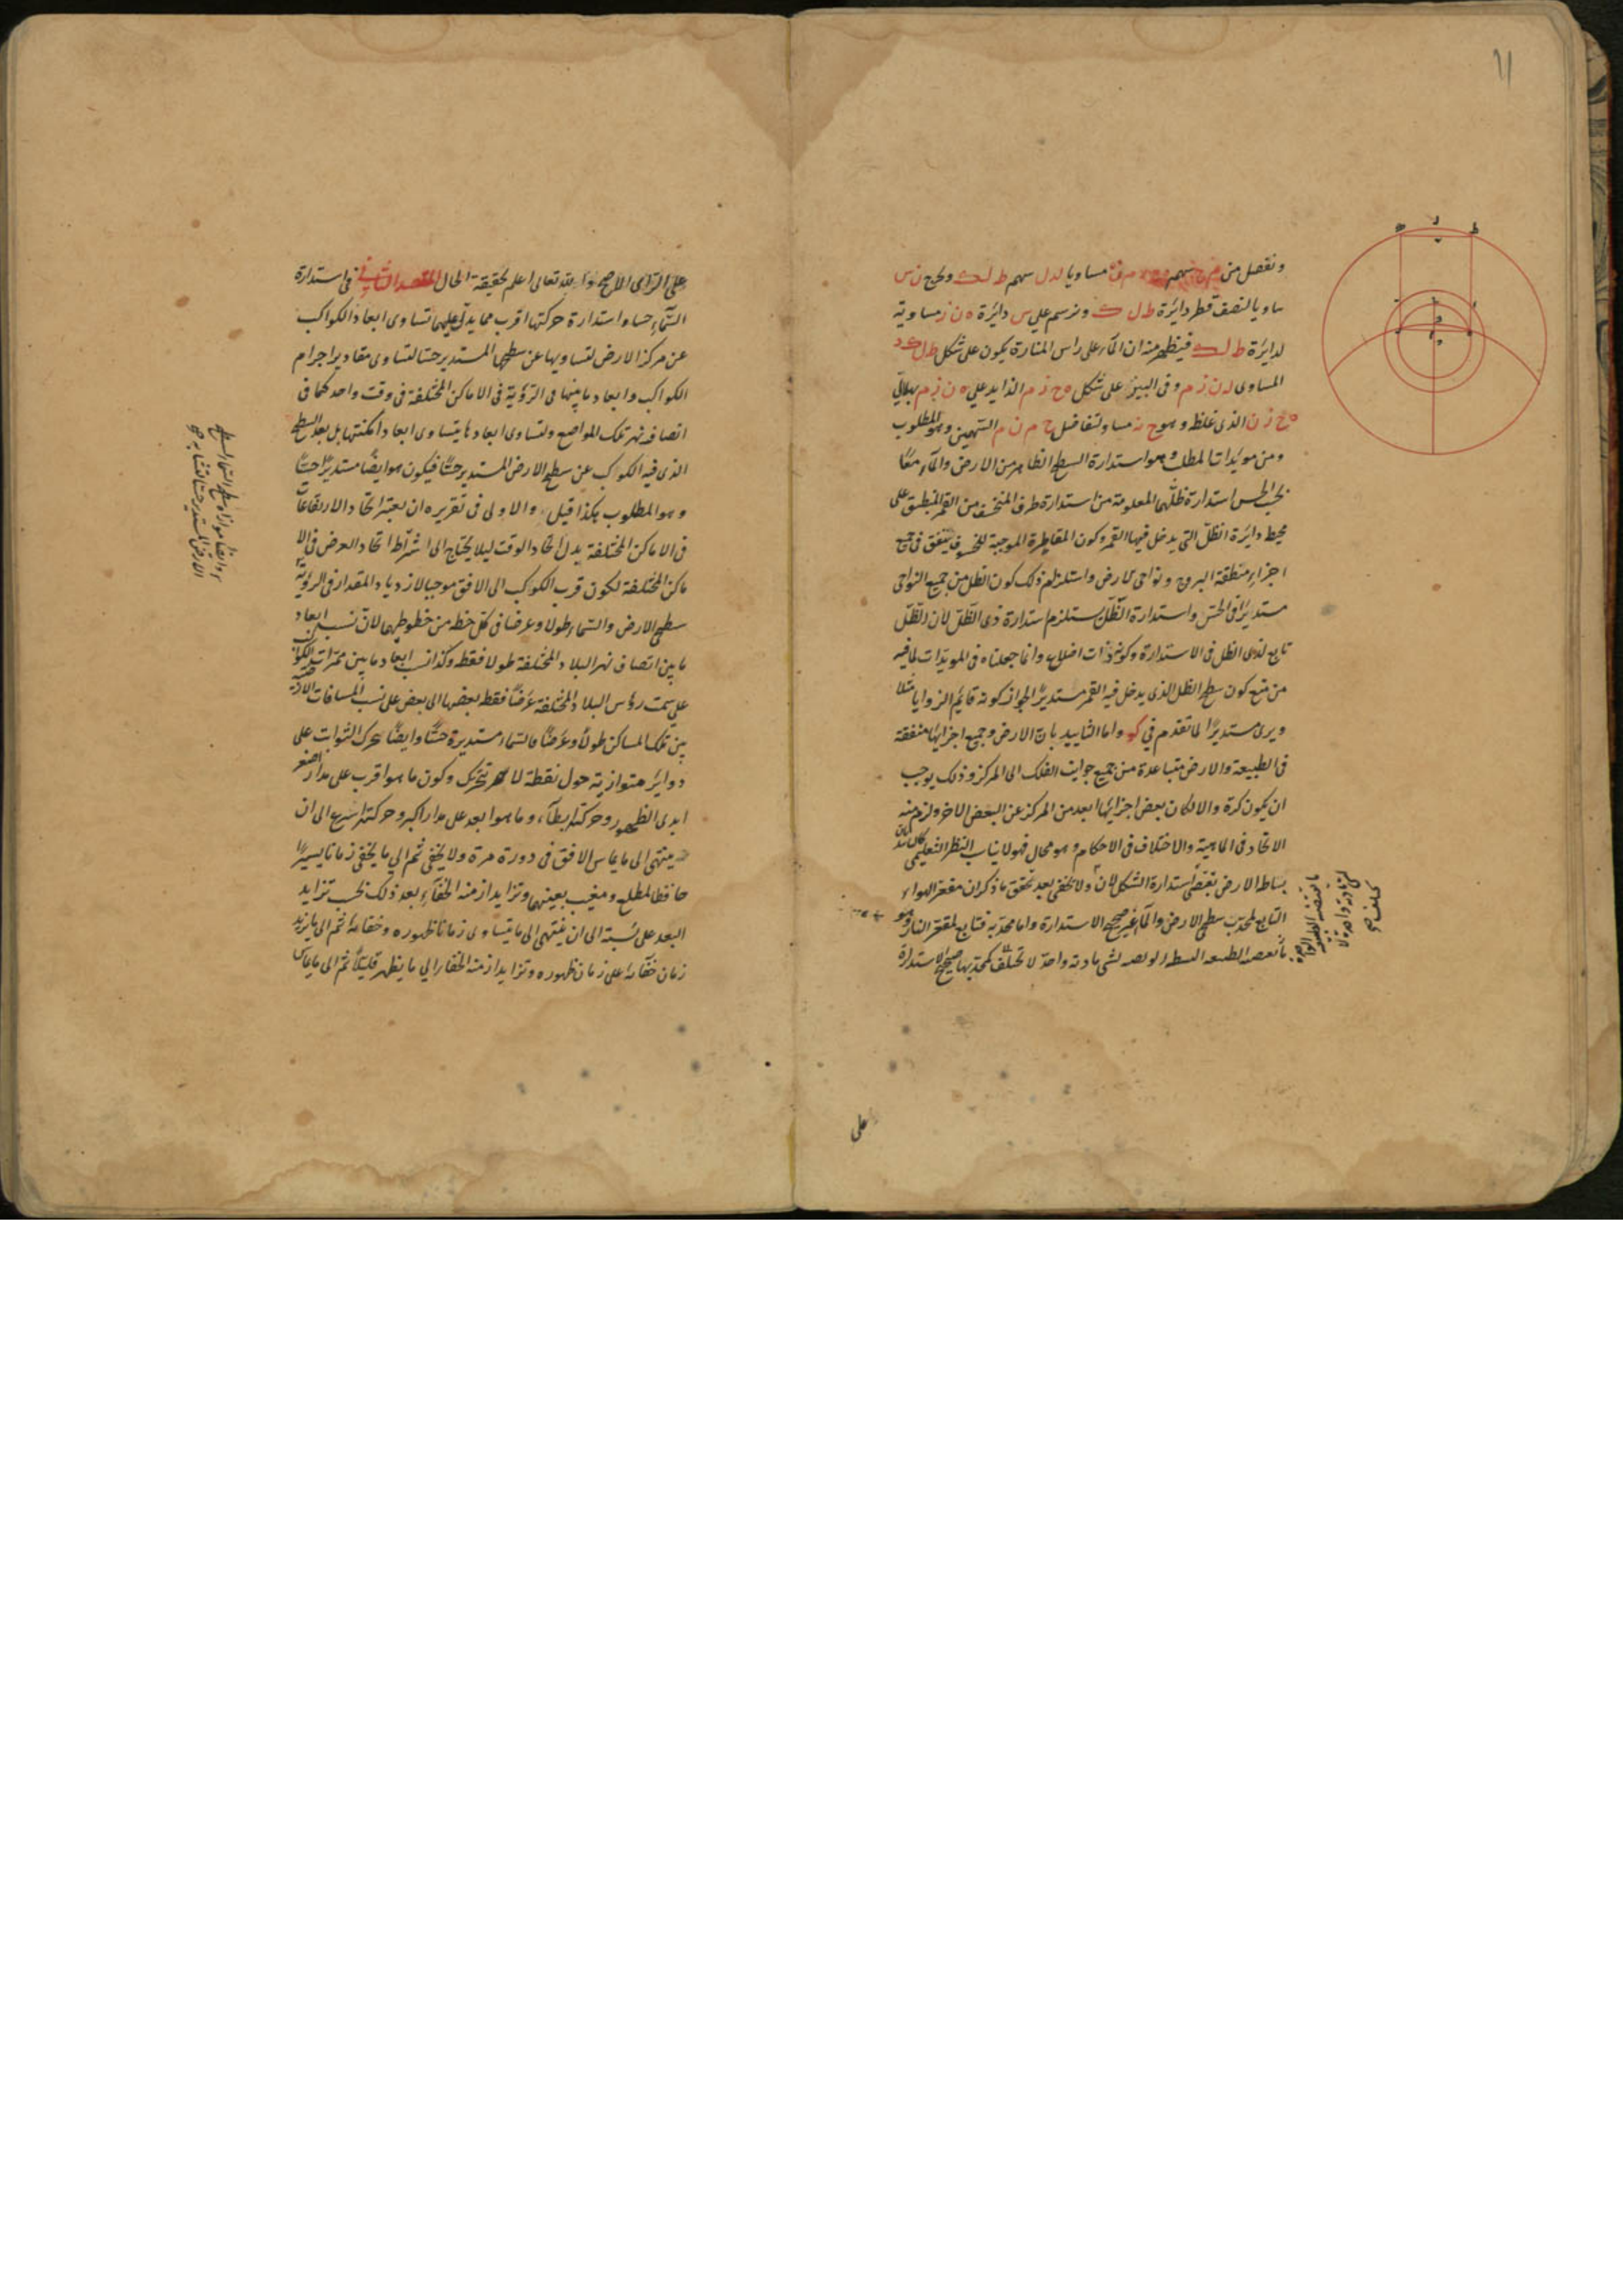 ١١
ونفصل من سهم مساويا لدل سهم ط لك ونخرج ن س
مساويا لنصف قطر دائرة ط ل ك ونرسم على س دائرة ه ن ز مساوية
لدائرة ط لك فيظهر منه ان الماء على راس المنارة يكون على شكل ط ل ك د
المساوى ن ز م وفى البير على شكل ه ح ز م الزايد على ه ن ز م بهلالى
ه ح ز ن الذى غلظه وهو ح ن مساو لتفاضل ح م ن م السهمين وهو المطلوب
ومن مويدات المطلب وهو استدارة السطح الظاهر من الارض والماء معا
بحسب الحس استدارة ظلهما المعلومة من استدارة طرف المنخسف من القمر المنطبق على
محيط دائرة الظل التى يدخل فيها القمر وكون المقاطرة الموجبة للخسوف يتفق فى جميع
اجزاء منطقة البروج ونواحى الارض واستلزام ذلك كون الظل من جميع النواحى
مستديرا فى الحس واستدارة الظل يستلزم استدارة ذى الظل لان الظل
تابع لذى الظل فى الاستدارة وكونه ذات اضلاع وانما جعلناه فى المويدات لما فيه
من منع كون سطح الظل الذى يدخل فيه القمر مستديرا لجواز كونه قايم الزوايا مثلا
ويرى مستديرا لما تقدم فى واما التاييد بان الارض وجميع اجزائها متفقة
فى الطبيعة والارض متباعدة من جميع جوانب الفلك الى المركز وذلك يوجب
ان يكون كرة والا لكان بعض اجزائها ابعد من المركز عن البعض الاخر ولزم منه
الاتحاد فى الماهية والاختلاف فى الاحكام وهو محال فهو لا يناسب النظر التعليمى
بساط الارض يقتضى استدارة الشكل لان ولا يخفى بعد تحقق ما ذكر ان مقعر الهواء
التابع لمحدب سطحى الارض والماء غير صحيح الاستدارة واما محدبه فتابع لمقعر النار وهو
لشى مادته واحدة لا تختلف كمحدبها صحيح الاستدارة
على
على الراى الاصح والله تعالى اعلم بحقيقة الحال المقصد الثانى فى استدارة
السماء حسا واستدارة حركتها اقرب مما يدل عليهما تساوى ابعاد الكواكب
عن مركز الارض لتساويها عن سطحها المستدير حسا لتساوى مقادير اجرام
الكواكب وابعاد ما بينها فى الرؤية فى الاماكن المختلفة فى وقت واحد كما فى
انصاف نهر تلك المواضع ولتساوى ابعادها يتساوى ابعاد امكنتها بل بعد السطح
الذى فيه الكواكب عن سطح الارض المستدير حسا فيكون هو ايضا مستديرا حسا
وهو المطلوب هكذا قيل والاولى فى تقريره ان يعتبر اتحاد الارتفاعات
فى الاماكن المختلفة بدل اتحاد الوقت ليلا يحتاج الى اشتراط اتحاد العرض فى الا
ماكن المختلفة لكون قرب الكواكب الى الافق موجبا لازدياد المقدار فى الرؤية
سطحى الارض والسماء طولا وعرضا فى كل خط من خطوطهما لان نسب ابعاد
ما بين انصاف نهر البلاد المختلفة طولا فقط وكذا نسب ابعاد ما بين ممرات الكواكب
على سمت رؤس البلاد المختلفة عرضا فقط بعضها الى بعض على نسب المسافات الارضية
بين تلك المساكن طولا وعرضا فالسماء مستديرة حسا وايضا تحرك الثوابت على
دواير متوازية حول نقطة لا تتحرك وكون ما هو اقرب على مدار اصغر
ابدى الظهور وحركته ابطأ وما هو ابعد على مدار اكبر وحركته اسرع الى ان
ينتهى الى ما يماس الافق فى دورة مرة ولا يخفى ثم الى ما يخفى زمانا يسيرا
حافظا لمطلع ومغيب بعينهما وتزايد ازمنة الخفاء بعد ذلك بحسب تزايد
البعد على نسبة الى ان ينتهى الى ما يتساوى زمانا ظهوره وخفائه ثم الى ما يزيد
زمان خفائه على زمان ظهوره وتزايد ازمنة الخفاء الى ما يظهر قليلا ثم الى ما يماس